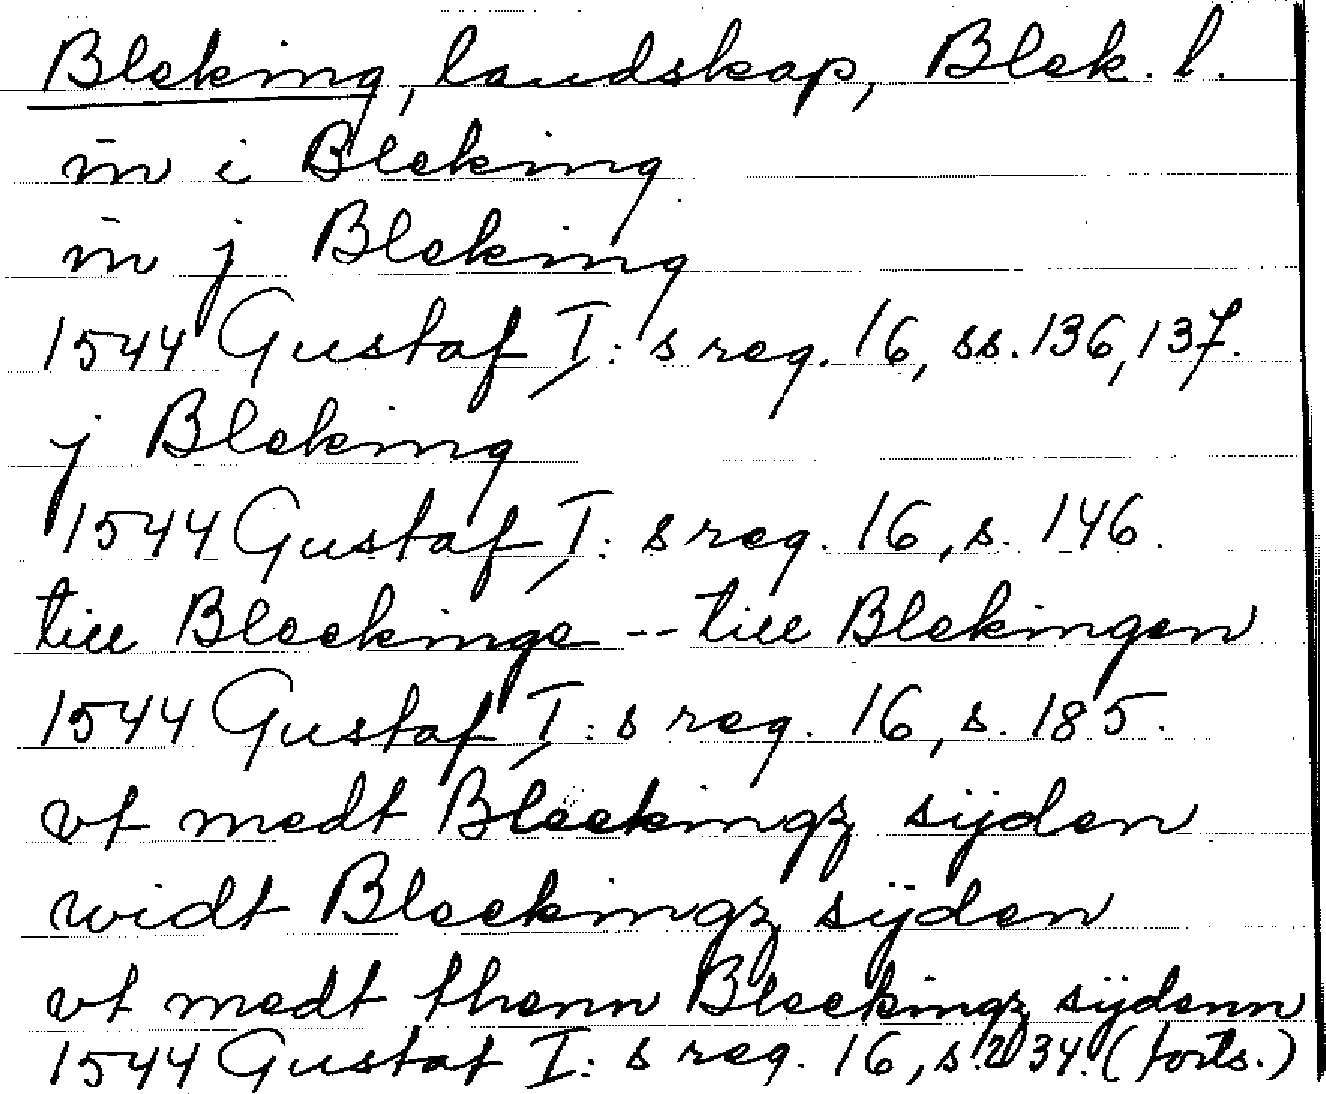 Bleking, landskap, Blek. l.
in̄ i Bleking
in̄ j Bleking
1544 Gustaf I: s reg. 16, ss. 136, 137.
j Bleking
1544 Gustaf I: s reg. 16, s. 146.
till Bleckinge -- till Blekingen
1544 Gustaf I: s reg. 16, s. 185.
vt medt Bleckingz sijden
widt Bleckingz sijden
vt medt thenn Bleckingz sijdenn
1544 Gustaf I: s reg. 16, s. 234. (forts.)